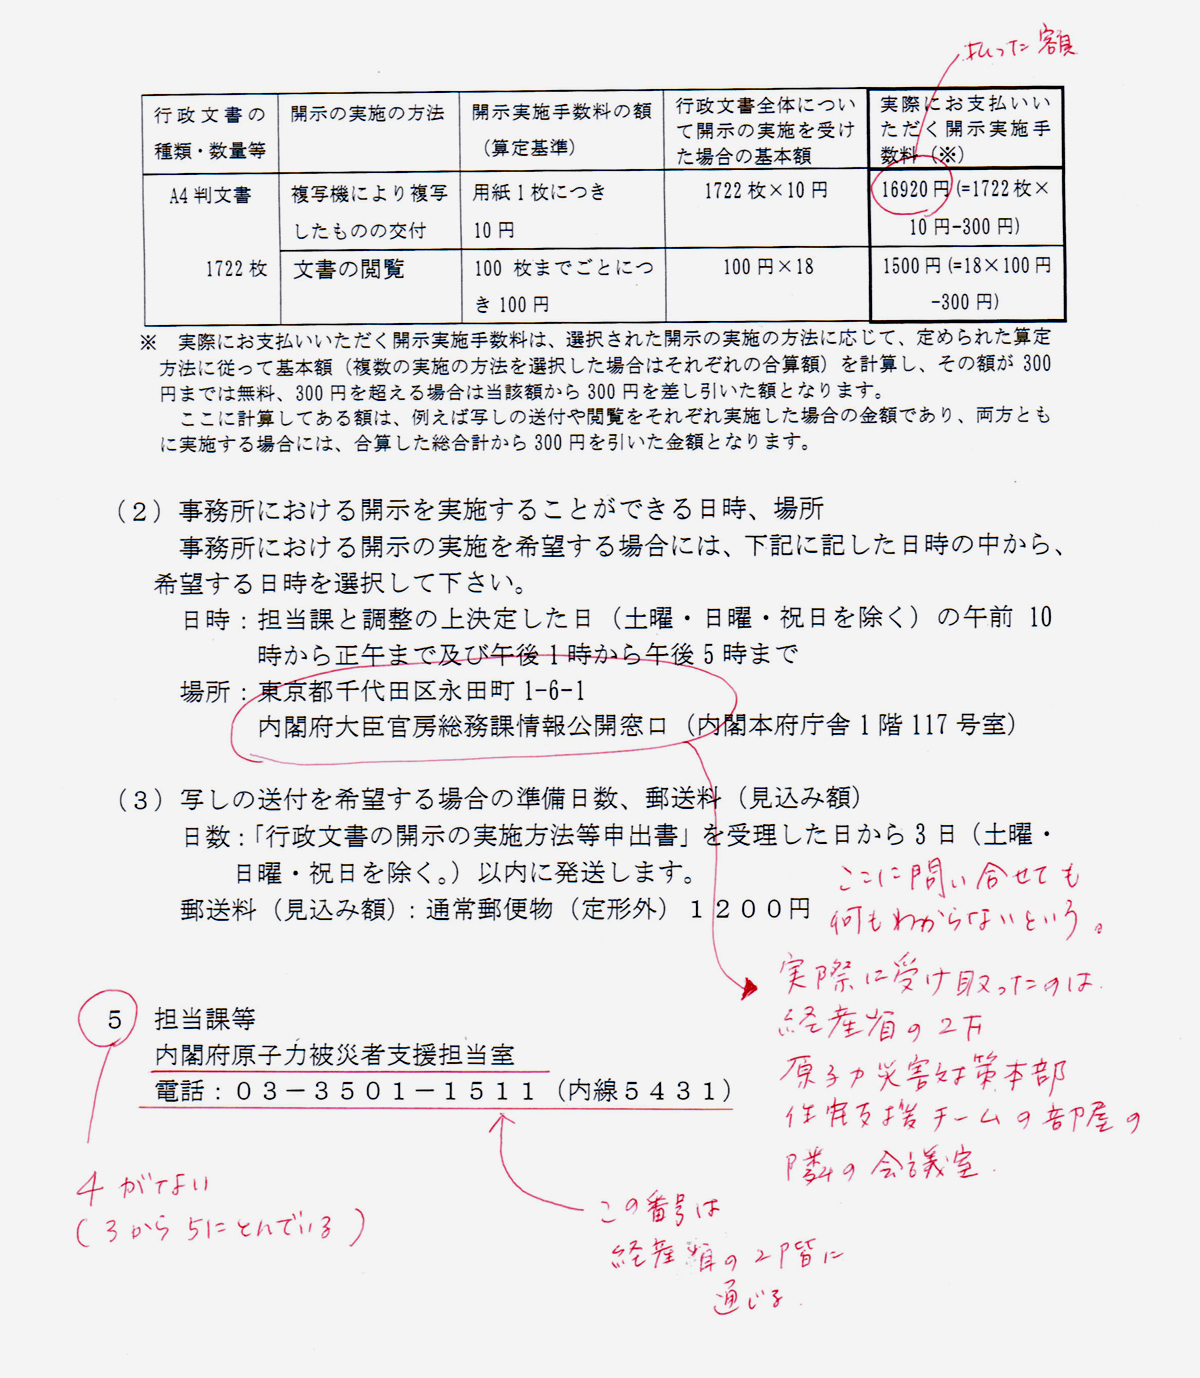 払った額
行政文書の種類・数量等
開示の実施の方法
開示実施手数料の額（算定基準）
行政文書全体について開示の実施を受けた場合の基本額
実際にお支払いいただく開示実施手数料（※）
A4判文書
1722枚
複写機により複写したものの交付
用紙1枚につき10円
1722枚×10円
16920円(=1722枚×10円-300円)
文書の閲覧
100枚までごとにつき100円
100円×18
1500円(=18×100円-300円)
※　実際にお支払いいただく開示実施手数料は、選択された開示の実施の方法に応じて、定められた算定
方法に従って基本額（複数の実施の方法を選択した場合はそれぞれの合算額）を計算し、その額が300
円までは無料、300円を超える場合は当該額から300円を差し引いた額となります。
ここに計算してある額は、例えば写しの送付や閲覧をそれぞれ実施した場合の金額であり、両方とも
に実施する場合には、合算した総合計から300円を引いた金額となります。
（2）事務所における開示を実施することができる日時、場所
事務所における開示の実施を希望する場合には、下記に記した日時の中から、
希望する日時を選択して下さい。
日時：担当課と調整の上決定した日（土曜・日曜・祝日を除く）の午前10
時から正午まで及び午後1時から午後5時まで
場所：東京都千代田区永田町1-6-1
内閣府大臣官房総務課情報公開窓口（内閣本府庁舎1階117号室）
（3）写しの送付を希望する場合の準備日数、郵送料（見込み額）
日数：「行政文書の開示の実施方法等申出書」を受理した日から3日（土曜・
日曜・祝日を除く。）以内に発送します。
郵送料（見込み額）：通常郵便物（定形外）１２００円
ここに問い合せても
何もわからないという。
実際に受け取ったのは
経産省の2F
原子力災害対策本部
住宅支援チームの部屋の
隣の会議室.
5　担当課等
内閣府原子力被災者支援担当室
電話：０３－３５０１－１５１１（内線５４３１）
4がない
(3から5にとんでいる)
この番号は
経産省の2階に
通じる.